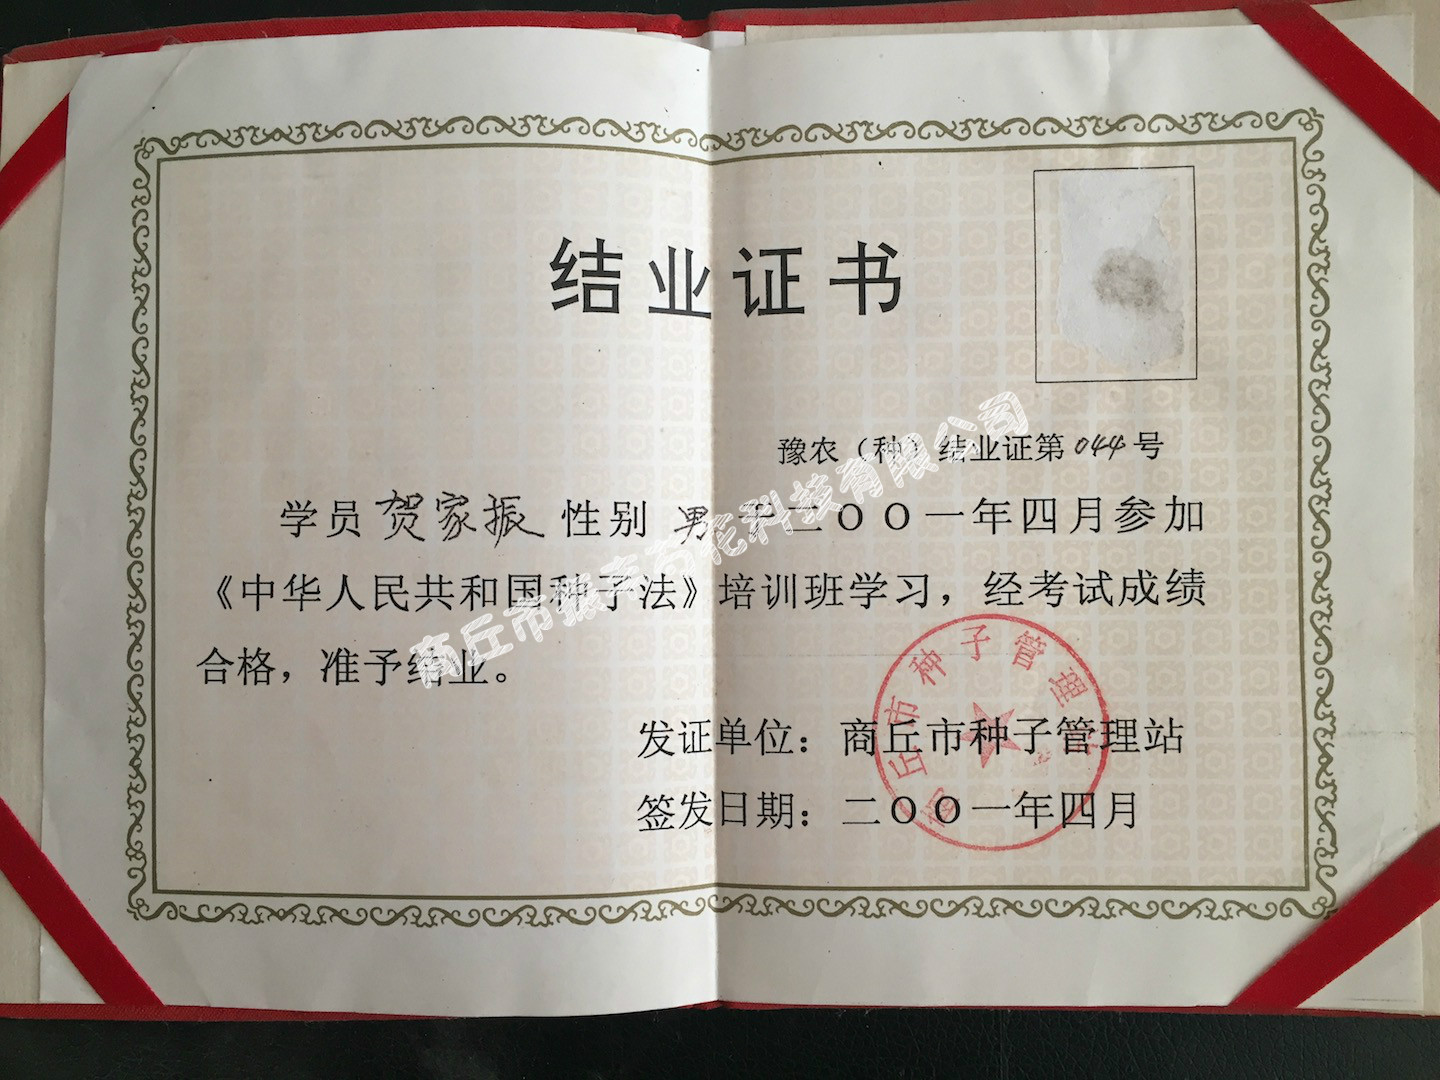 结业证书
豫农（种）结业证第044号
学员 贺家振 性别 男 于二〇〇一年四月参加
《中华人民共和国种子法》培训班学习，经考试成绩
合格，准予结业。
发证单位：商丘市种子管理站
签发日期：二〇〇一年四月
商丘市种子管理